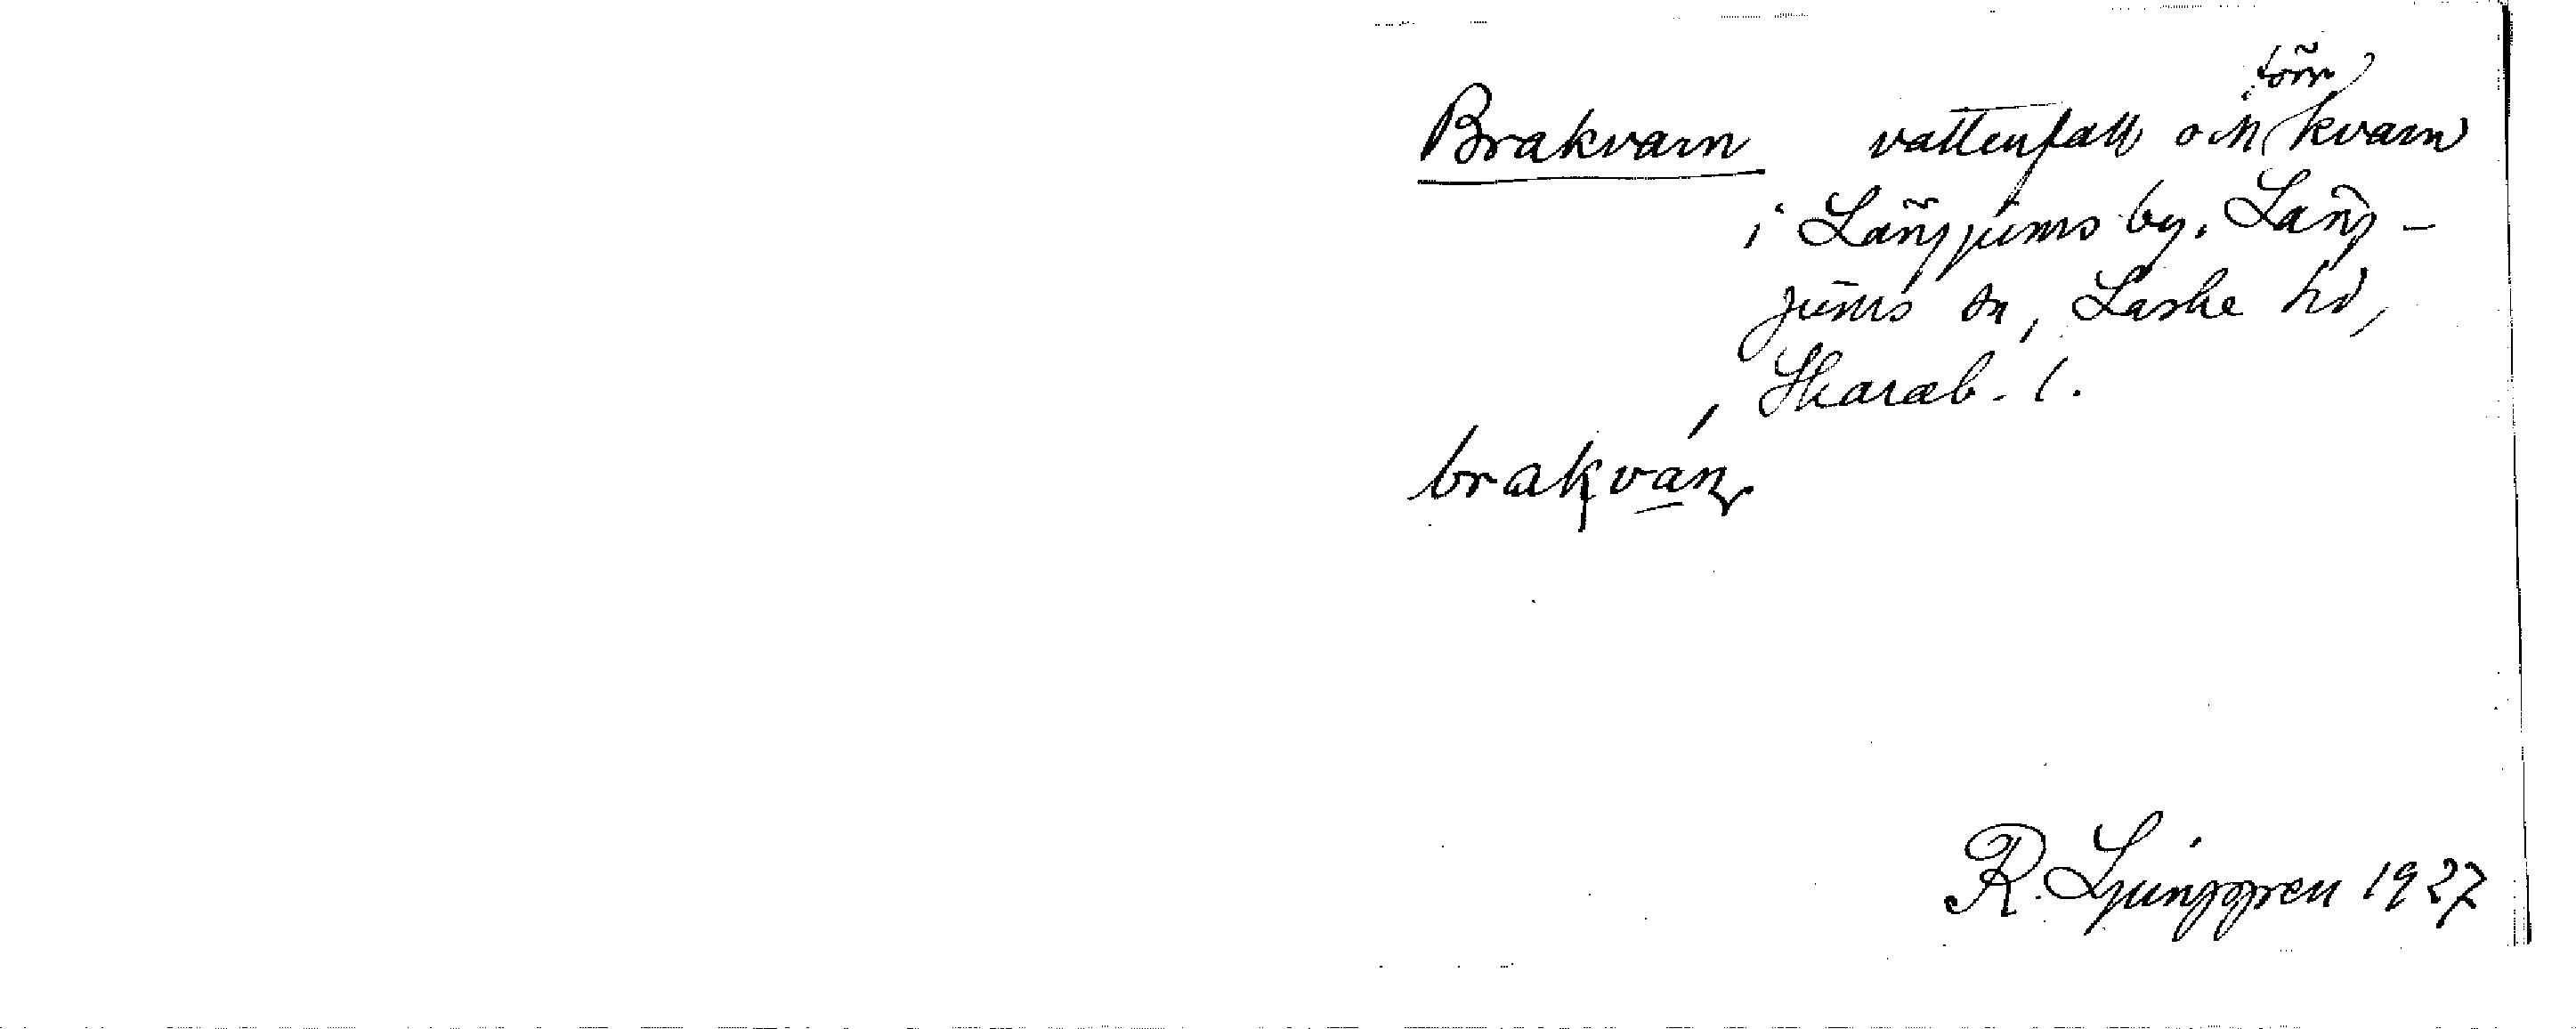 Brakvarn vattenfall och (förr) kvarn
i Längjums by, Läng-
jums sn, Laske hd,
Skarab. l.
brakván
R. Ljunggren 1927